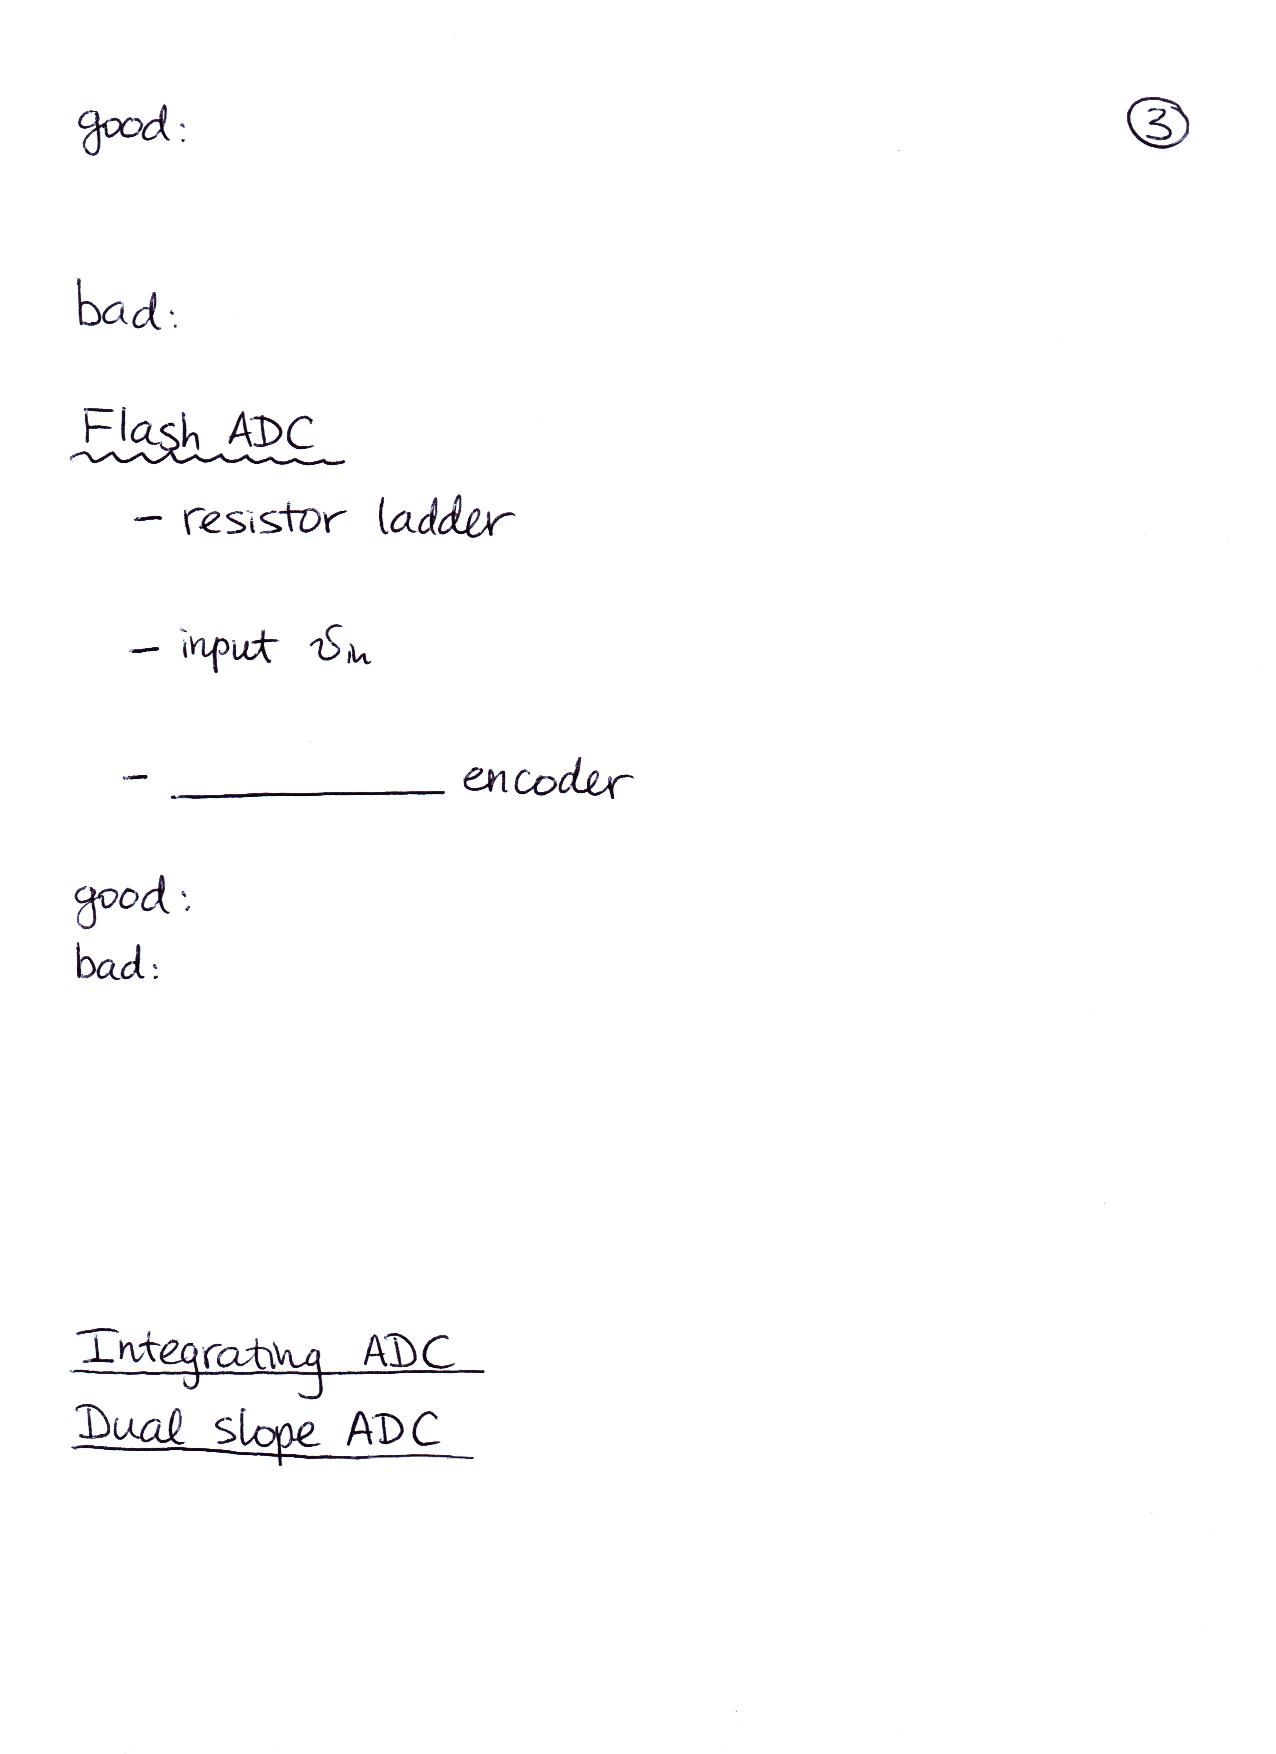 good: 3
bad:
Flash ADC
- resistor ladder
- input vin
- __________ encoder
good:
bad:
Integrating ADC
Dual slope ADC